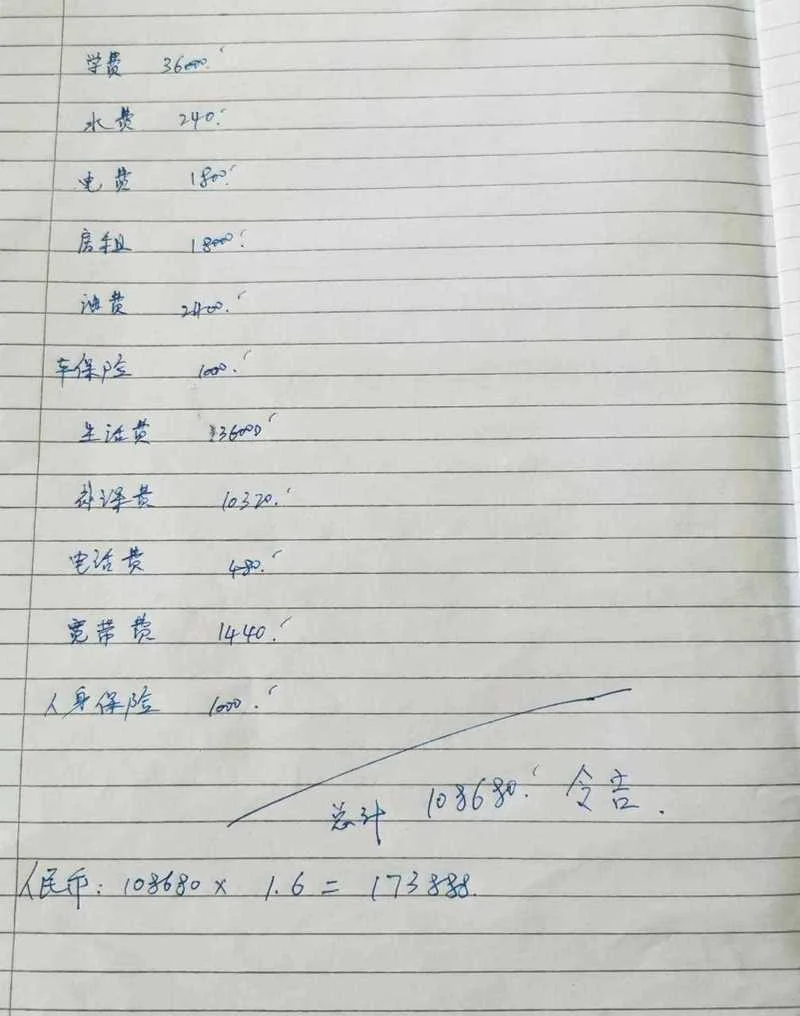 学费 36000.
水费 240.
电费 1800.
房租 18000.
油费 2400.
车保险 1000.
生活费 36000
补课费 10320.
电话费 480.
宽带费 1440.
人身保险 1000.
总计 108680. 令吉.
人民币: 108680 × 1.6 = 173888.